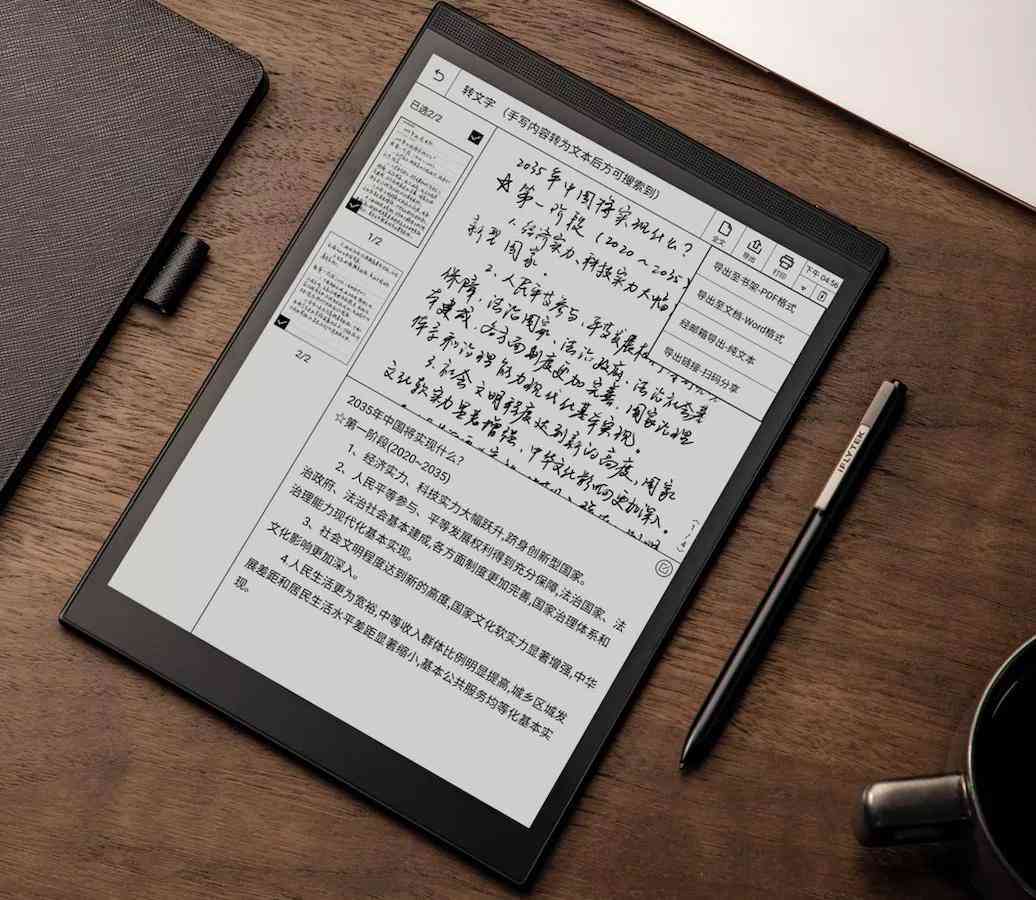 转文字 （手写内容转为文本后方可搜索到）
下午 04:56
已选2/2
全文
导出
打印
导出至书架-PDF格式
导出至文档-Word格式
经邮箱导出-纯文本
导出链接-扫码分享
1/2
2/2
2035年中国将实现什么？
☆第一阶段（2020～2035）
1.经济实力、科技实力大幅
新型国家。
2.人民平等参与、平等发展权
保障，法治国家、法治政府、法治社会基
本建成，各方面制度更加完善，国家治理
体系和治理能力现代化基本实现。
3.社会文明程度达到新的高度，国家
文化软实力显著增强，中华文化影响更加深入。
2035年中国将实现什么？
☆第一阶段(2020~2035)
1、经济实力、科技实力大幅跃升,跻身创新型国家。
2、人民平等参与、平等发展权利得到充分保障,法治国家、法
治政府、法治社会基本建成,各方面制度更加完善,国家治理体系和
治理能力现代化基本实现。
3、社会文明程度达到新的高度,国家文化软实力显著增强,中华
文化影响更加深入。
4.人民生活更为宽裕,中等收入群体比例明显提高,城乡区域发
展差距和居民生活水平差距显著缩小,基本公共服务均等化基本实
现。
iFLYTEK